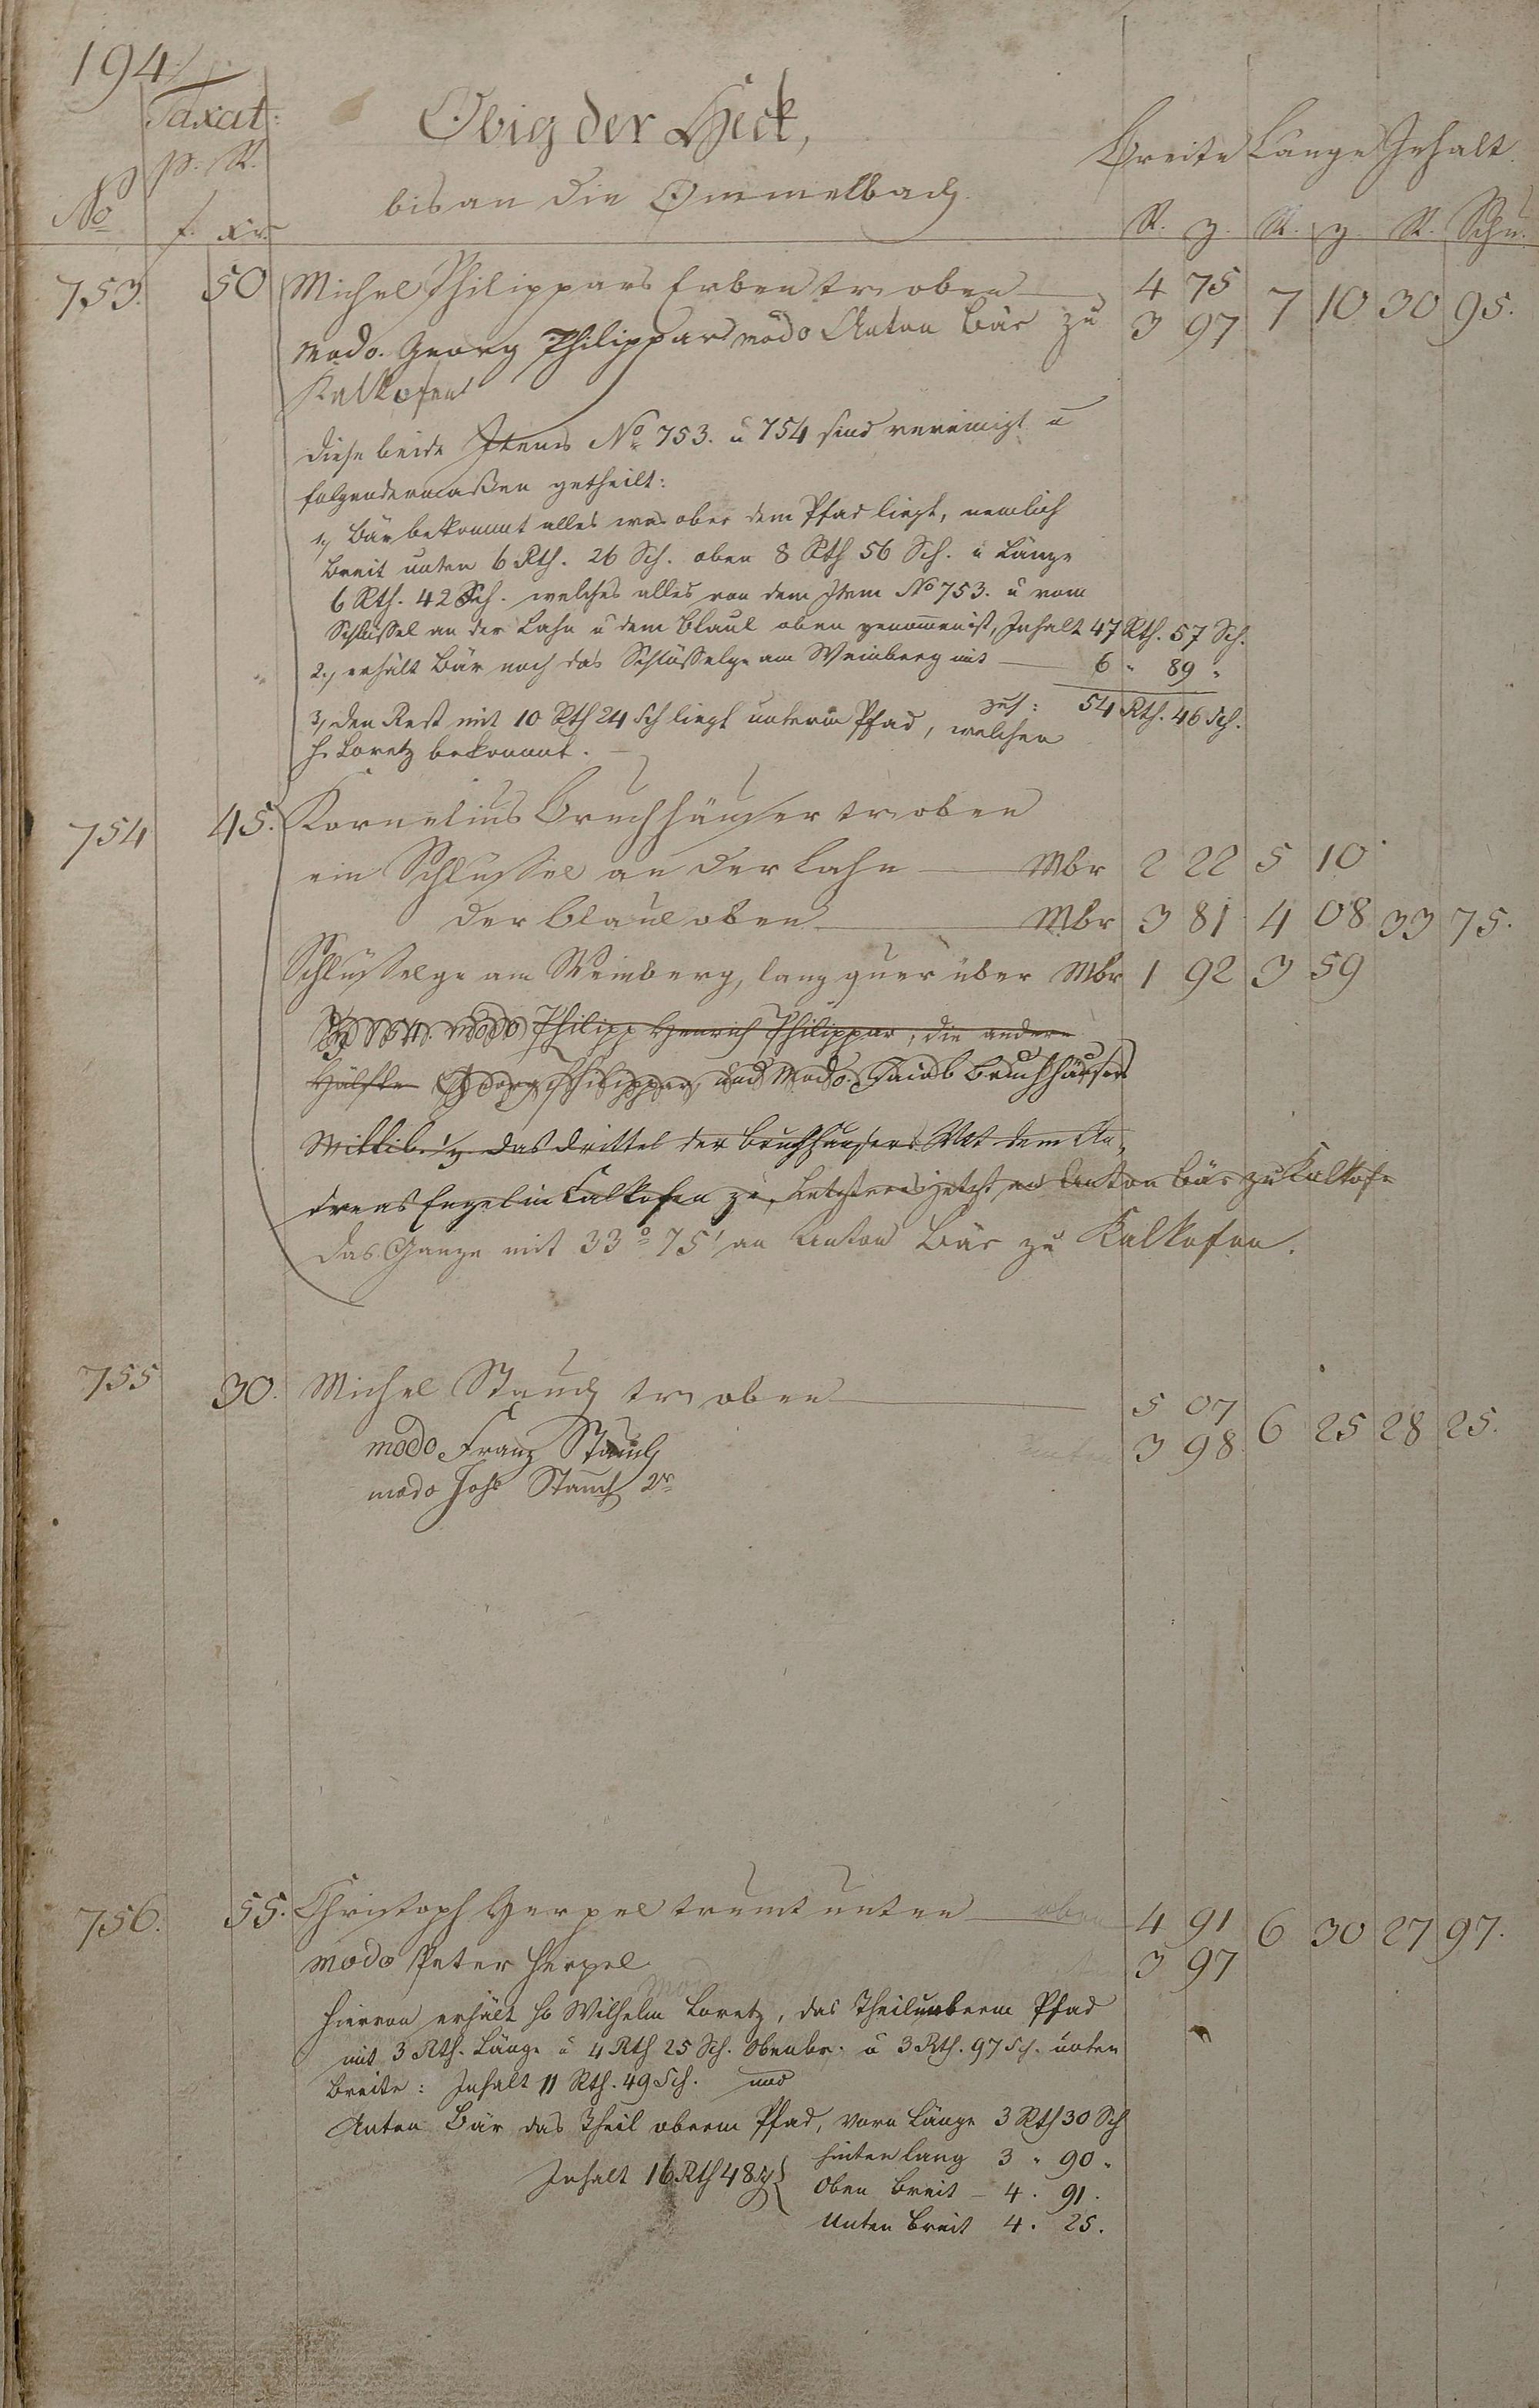 194
Taxat:
Obig der Heck,
Breite Länge Inhalt
p. R.
bis an die Ommelbach.
No f. xr. R. z. R. z. R. Schu.
753. 50 Michel Philippars Erben tr oben 4 75 7 10 30 95.
modo. Georg Philippar modo Anton Bär zu 3 97
Kalkofen
diese beide Items No 753. u 754 sind vereinigt u
folgendermaßen getheilt:
1, Bär bekommt alles was ober dem Pfad liegt, nemlich
Breit unten 6 Rth. 26 Sch. oben 8 Rth 56 Sch. u Länge
6 Rth. 42 Sch. welches alles von dem Item No 753. u vom
Schlüssel an der Lahn u dem Blaul oben genommen ist, Inhalt 47 Rth. 57 Sch.
2, erhält Bär noch das Schlüsselge am Weinberg mit 6 " 89 "
zus: 54 Rth. 46 Sch.
3, den Rest mit 10 Rth 24 Sch liegt unterm Pfad, welchen
H. Loretz bekommt.
754 45. Kornelius Bruchhäuser tr oben
ein Schlussel an der Lahn Mbr 2 22 5 10
der Blaul oben Mbr 3 81 4 08 33 75.
Schlüsselge am Weinberg, lang quer über Mbr 1 92 3 59
modo Philipp Henrich Philippar, die andere
Hälfte Georg Philippar, und Modo. Jacob Bruchhäuser
das drittel der Bruchhäusers dem An-
dreas Engel in Kalkofen zu, Letzteres jetzt an Anton Bär zu Kalkofe
das Ganze mit 33° 75' an Anton Bär zu Kalkofen.
755 30. Michel Stauch tr oben 5 07 6 25 28 25.
modo Franz Stauch unten 3 98
modo Johs Stauch 2r
756. 55. Christoph Herpel trumt unten oben 4 91 6 30 27 97.
modo Peter Herpel 3 97
Hiervon erhält H. Wilhelm Loretz, das Theil unterm Pfad
mit 3 Rth. Länge u 4 Rth 25 Sch. Obenbr. u 3 Rth. 97 Sch. unten
Breite: Inhalt 11 Rth. 49 Sch. und
Anton Bär das Theil oberm Pfad, vorn Länge 3 Rth 30 Sch
hinten lang 3 " 90 "
Inhalt 16 Rth 48 Sch { Oben Breit – 4. 91.
Unten Breit 4. 25.